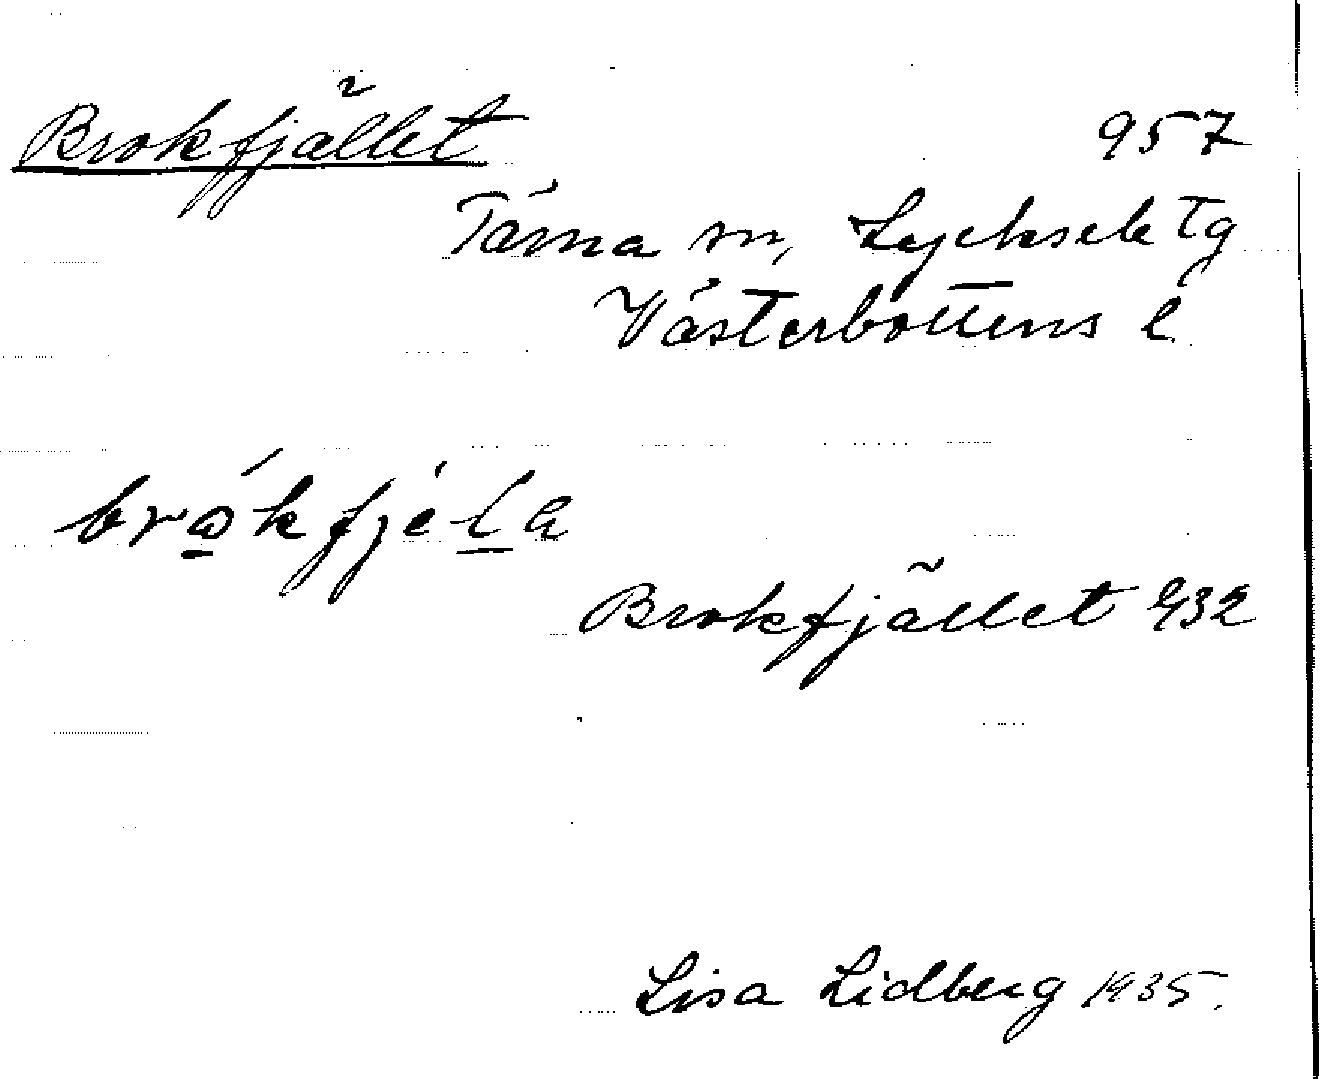 Brokfjället 957
Tärna sn, Lycksele tg
Västerbottens l
Brokfjället 932
Lisa Lidberg 1935.